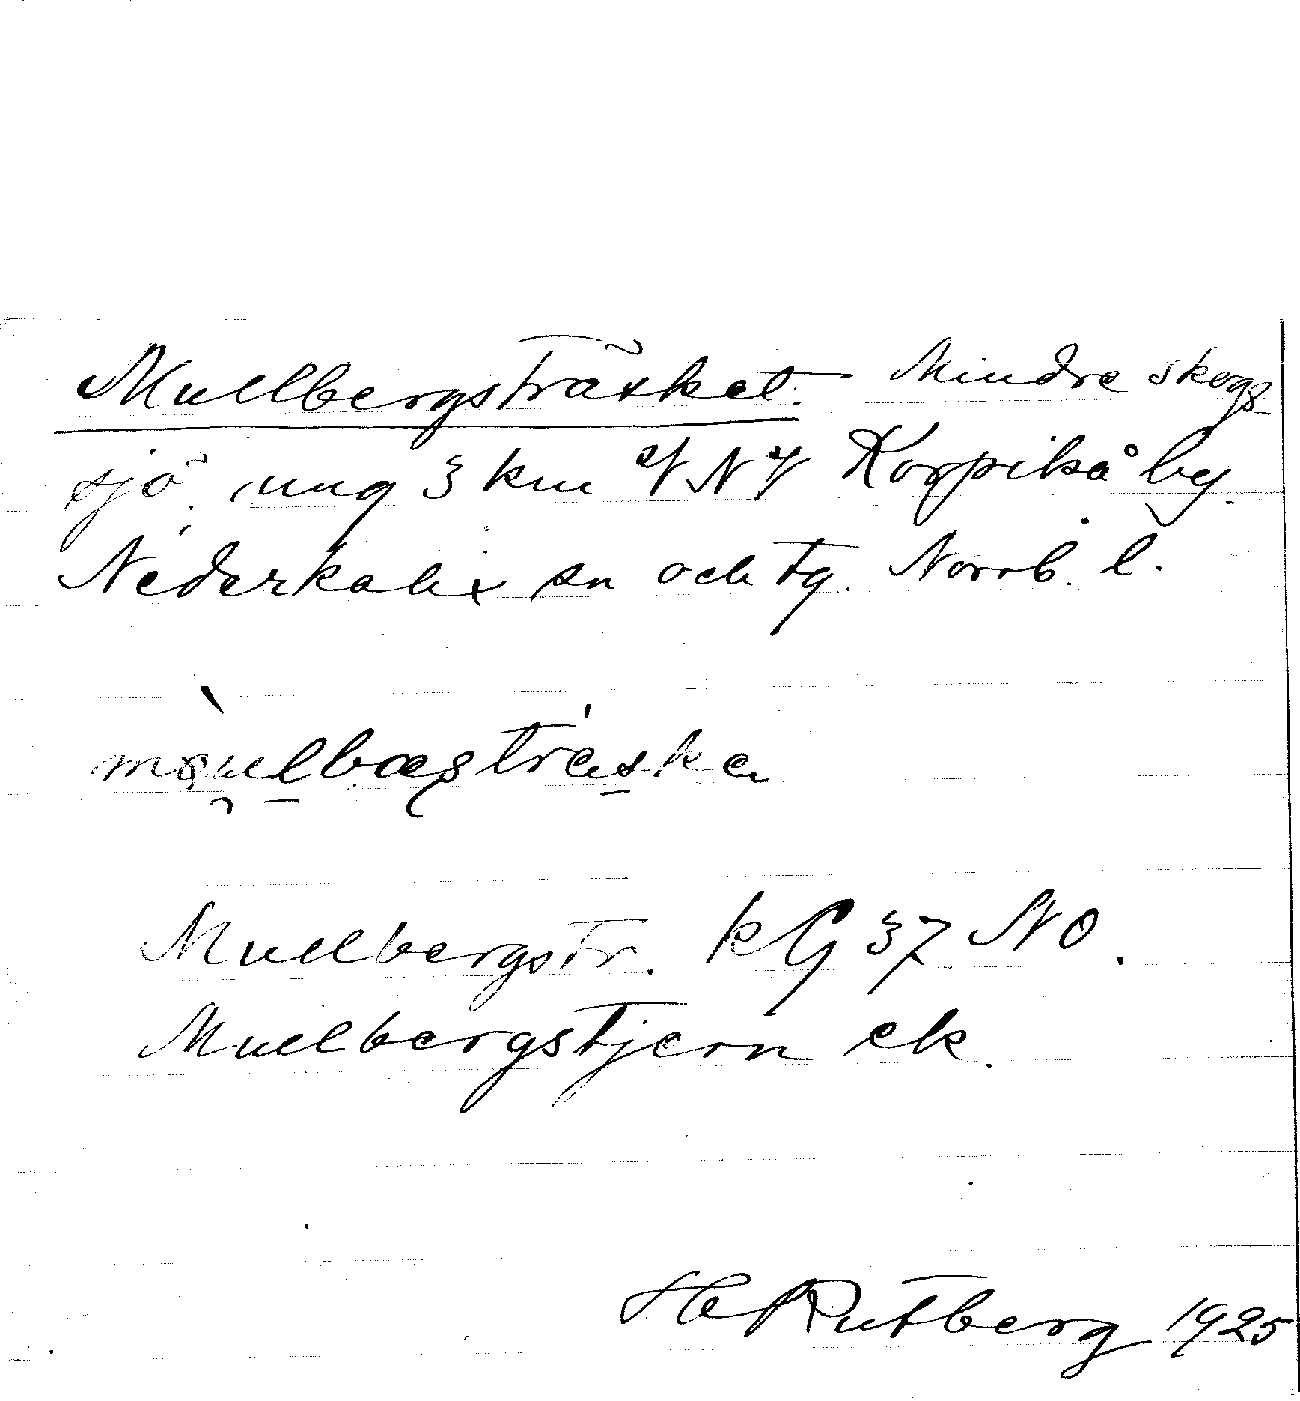 Mullbergsträsket. Mindre skogs
sjö, ung 3 km VNV Korpikå by.
Nederkalix sn och tg. Norrb. l.
Mullbergstr. kG 37 NO.
Mullbergstjern ek.
H Rutberg 1925